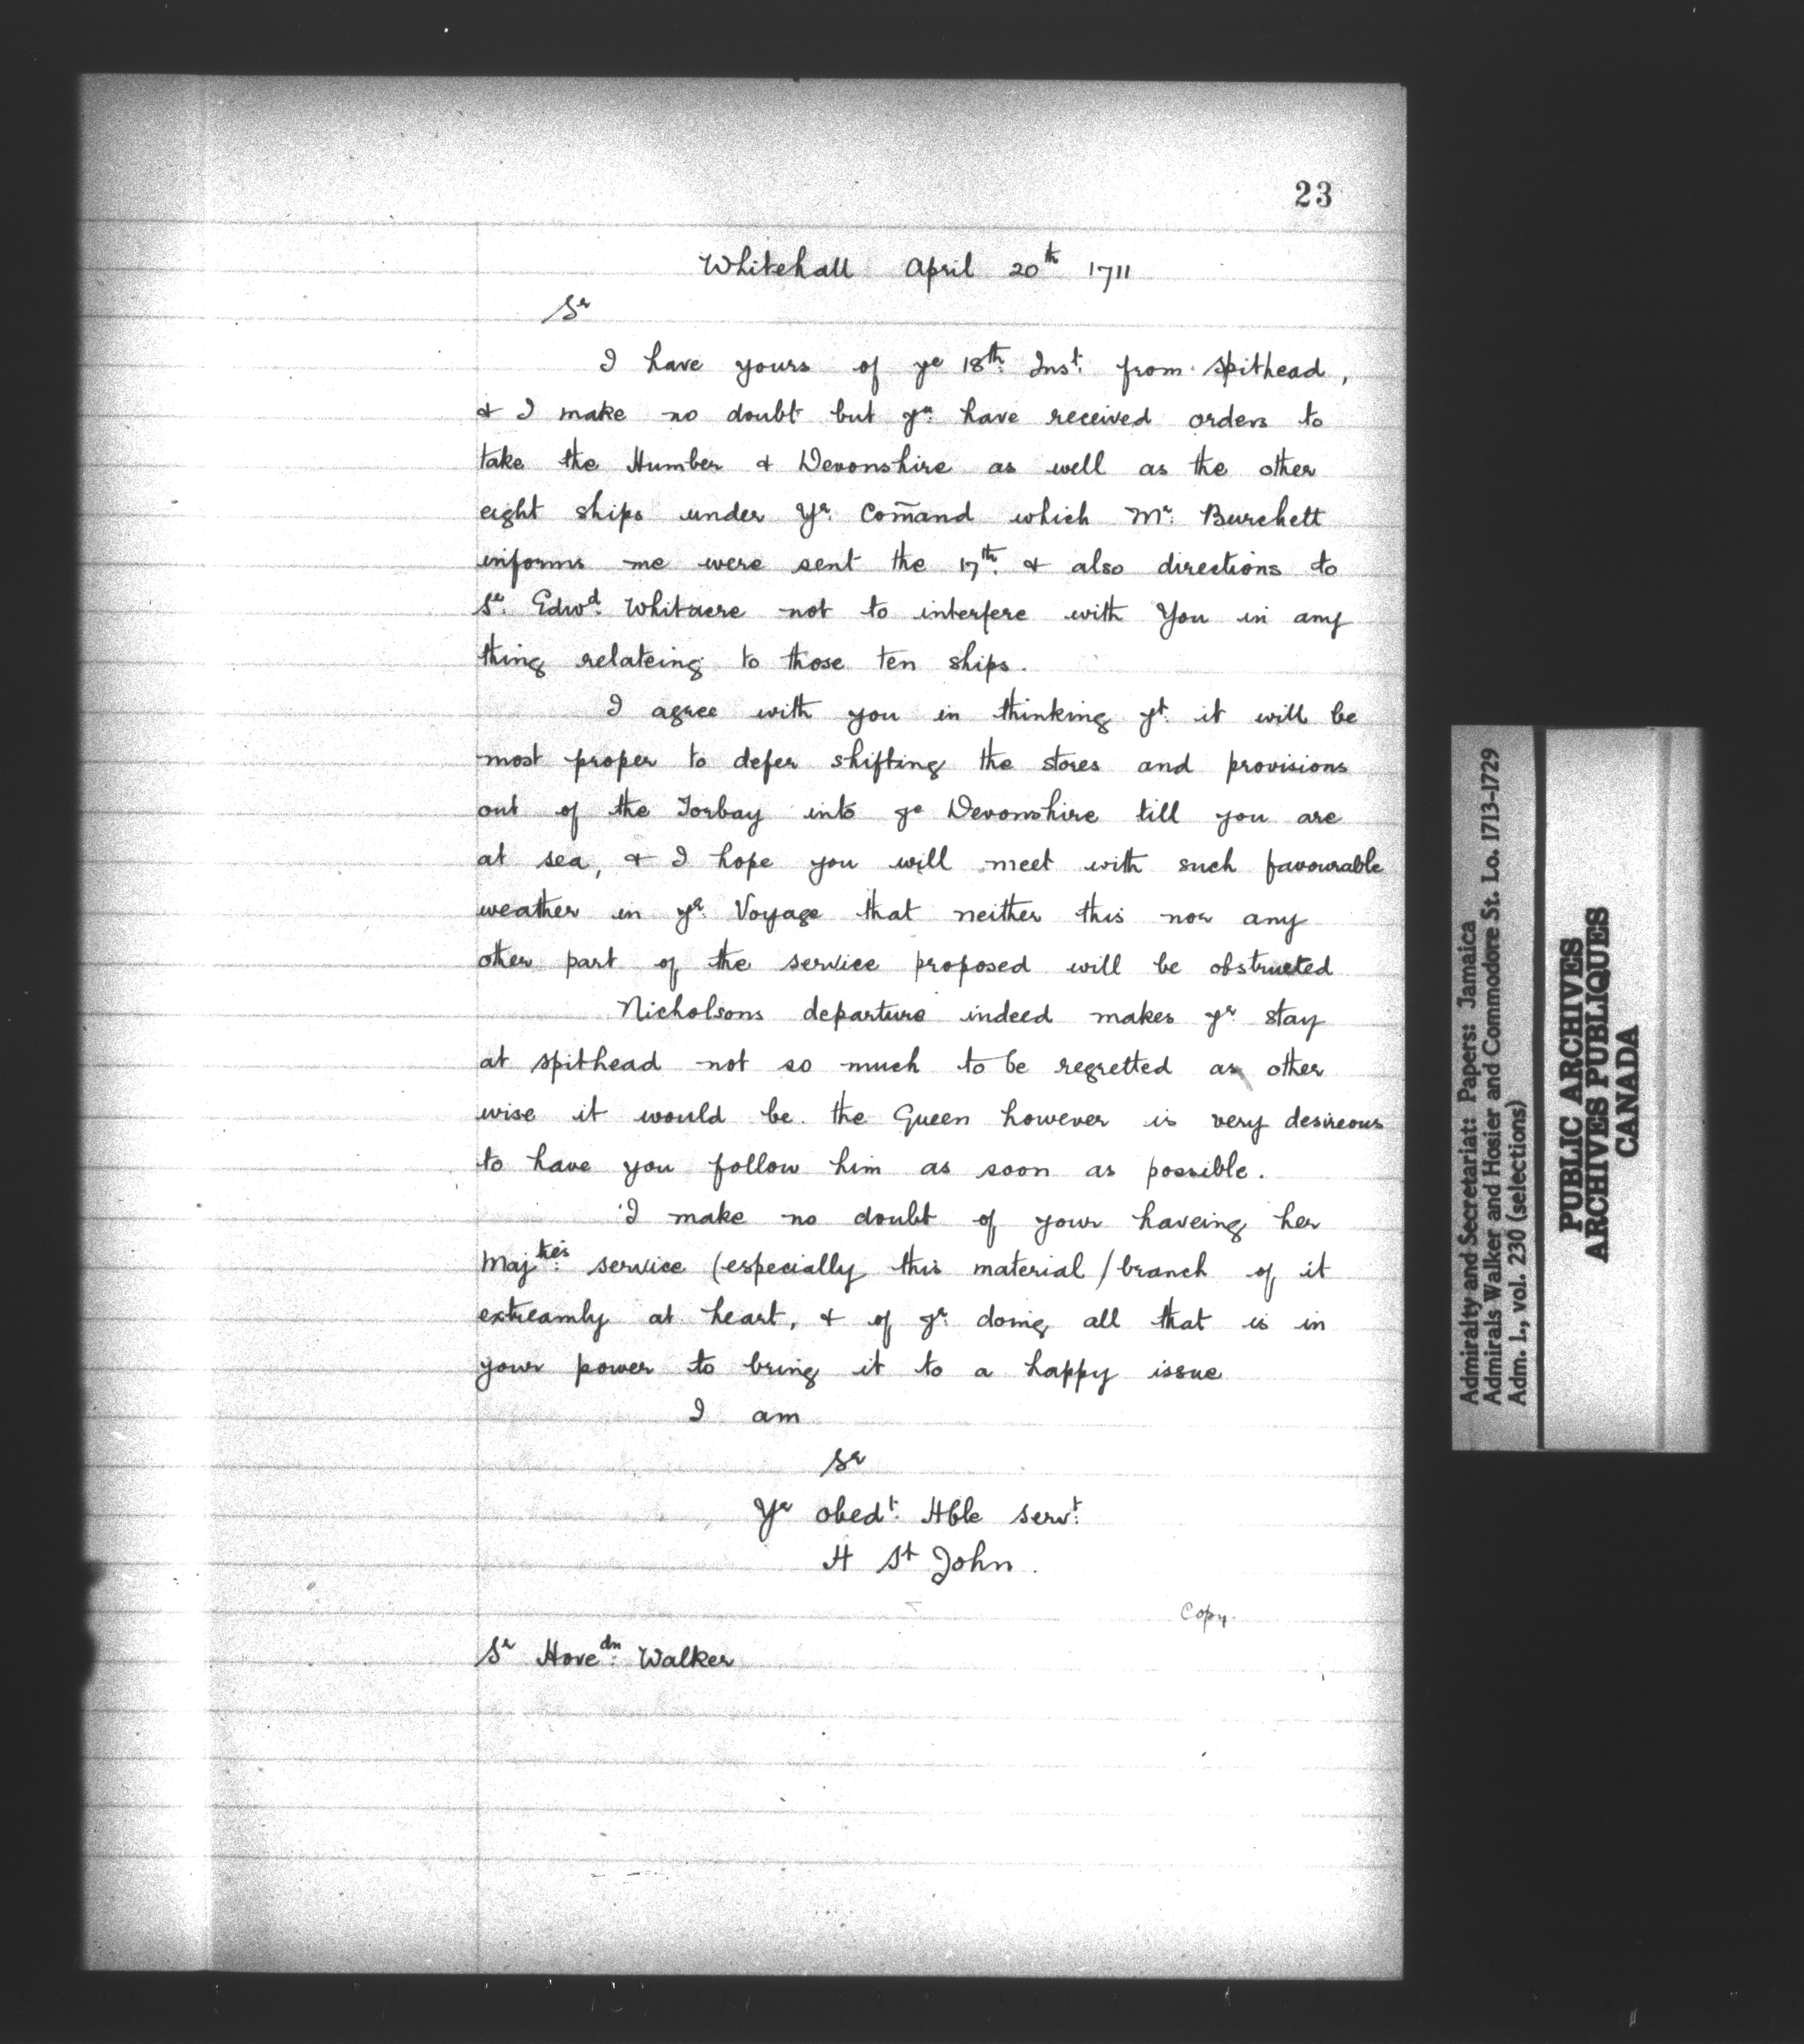 23
Whitehall April 20th 1711
Sr
I have yours of ye 18th. Inst. from Spithead,
& I make no doubt but yu. have received orders to
take the Humber & Devonshire as well as the other
eight ships under Yr. Com̄and which Mr. Burchett
informs me were sent the 17th. & also directions to
Sr. Edwd. Whitacre not to interfere with You in any
thing relateing to those ten ships.
I agree with you in thinking yt. it will be
most proper to defer shifting the stores and provisions
out of the Torbay into ye Devonshire till you are
at sea, & I hope you will meet with such favourable
weather in yr. Voyage that neither this nor any
other part of the service proposed will be obstructed
Nicholsons departure indeed makes yr stay
at spithead not so much to be regretted as other
wise it would be. the Queen however is very desireous
to have you follow him as soon as possible.
I make no doubt of your haveing her
Majties. service (especially this material / branch of it
extreamly at heart, & of yr. doing all that is in
your power to bring it to a happy issue
I am
Sr
Yr obedt. Hble servt.
H St John.
Copy.
Sr Hovedn. Walker
Admiralty and Secretariat: Papers: Jamaica
Admirals Walker and Hosier and Commodore St. Lo. 1713-1729
Adm. 1., vol. 230 (selections)
PUBLIC ARCHIVES
ARCHIVES PUBLIQUES
CANADA